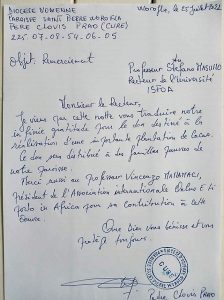 DIOCESE D'ODIENNE
PAROISSE SAINT PIERRE WOROFLA
PERE CLOVIS PRAO (CURE)
225.07-08-54-06-05
Worofla, le 25 Juillet 2022
Objet: Remerciement
Au
Professeur Stefano MASULLO
Recteur de l'Université
ISFOA
Monsieur le Recteur,
Je viens par cette notte vous traduire notre
infinie gratitude pour le don destiné à la
réalisation d'une importante plantation de Cacao.
Le don sera destiné à des familles pauvres de
notre paroisse.
Merci aussi au Professeur Vincenzo
président de l'Association internationale E ti
porto in Africa pour sa Contribution à cette
œuvre.
Que Dieu vous bénisse et vous
protège toujours.
Père Clovis PRAO